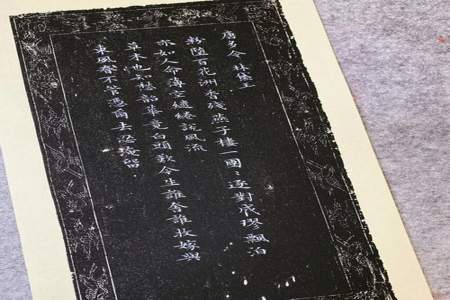 唐多令 林黛玉
粉墮百花洲香殘燕子樓一團〻逐對成毬飄泊
亦如人命薄空繾綣說風流
草木也知愁韶華竟白頭歎今生誰舍誰收嫁與
東風春不管憑爾去忍淹留